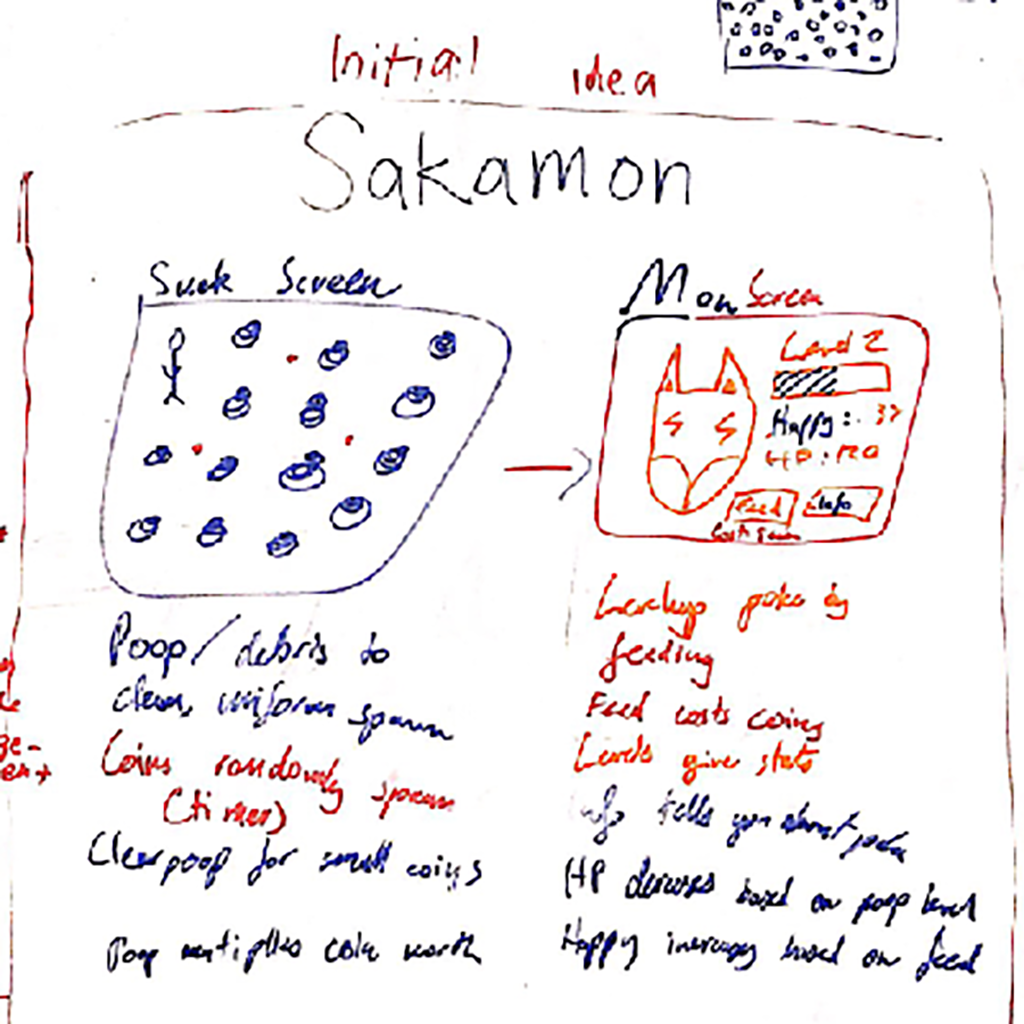 Initial idea
Sakamon
Suck Screen
Mon Screen
Level 2
Happy: 37
HP: 120
Feed
Info
Poop/debris to
clean, uniform spawn
Coins randomly spawn
(timer)
Clear poop for small coins
Poop multiplies coin worth
Levelup poke by
feeding
Feed costs coins
Levels give stats
Info tells you about poke
HP decreases based on poop level
Happy increases based on feed